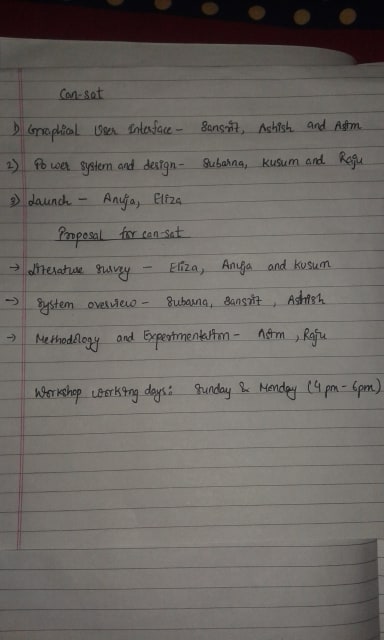 Can-sat
1) Graphical User Interface - Sansrit, Ashish and Asim
2) Power system and design - Subarna, Kusum and Raju
3) Launch - Anuja, Eliza
Proposal for can-sat
→ Literature Survey - Eliza, Anuja and Kusum
→ System overview - Subarna, Sansrit, Ashish
→ Methodology and Experimentation - Asim, Raju
Workshop working days: Sunday & Monday (4 pm - 6pm)